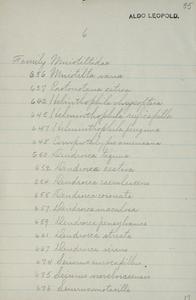 ALDO LEOPOLD.
95
6
Family Mniotiltidae
636 Mniotilta varia
637 Protonotaria citrea
642 Helminthophila chrysoptera
645 Helminthophila ruficapilla
647 Helminthophila peregrina
648 Compsothlypis americana
650 Dendroica tigrina
652 Dendroica aestiva
654 Dendroica caerulescens
655 Dendroica coronata
657 Dendroica maculosa
659 Dendroica pensylvanica
661 Dendroica striata
667 Dendroica virens
674 Seiurus aurocapillus
675 Seiurus noveboracensis
676 Seiurus motacilla